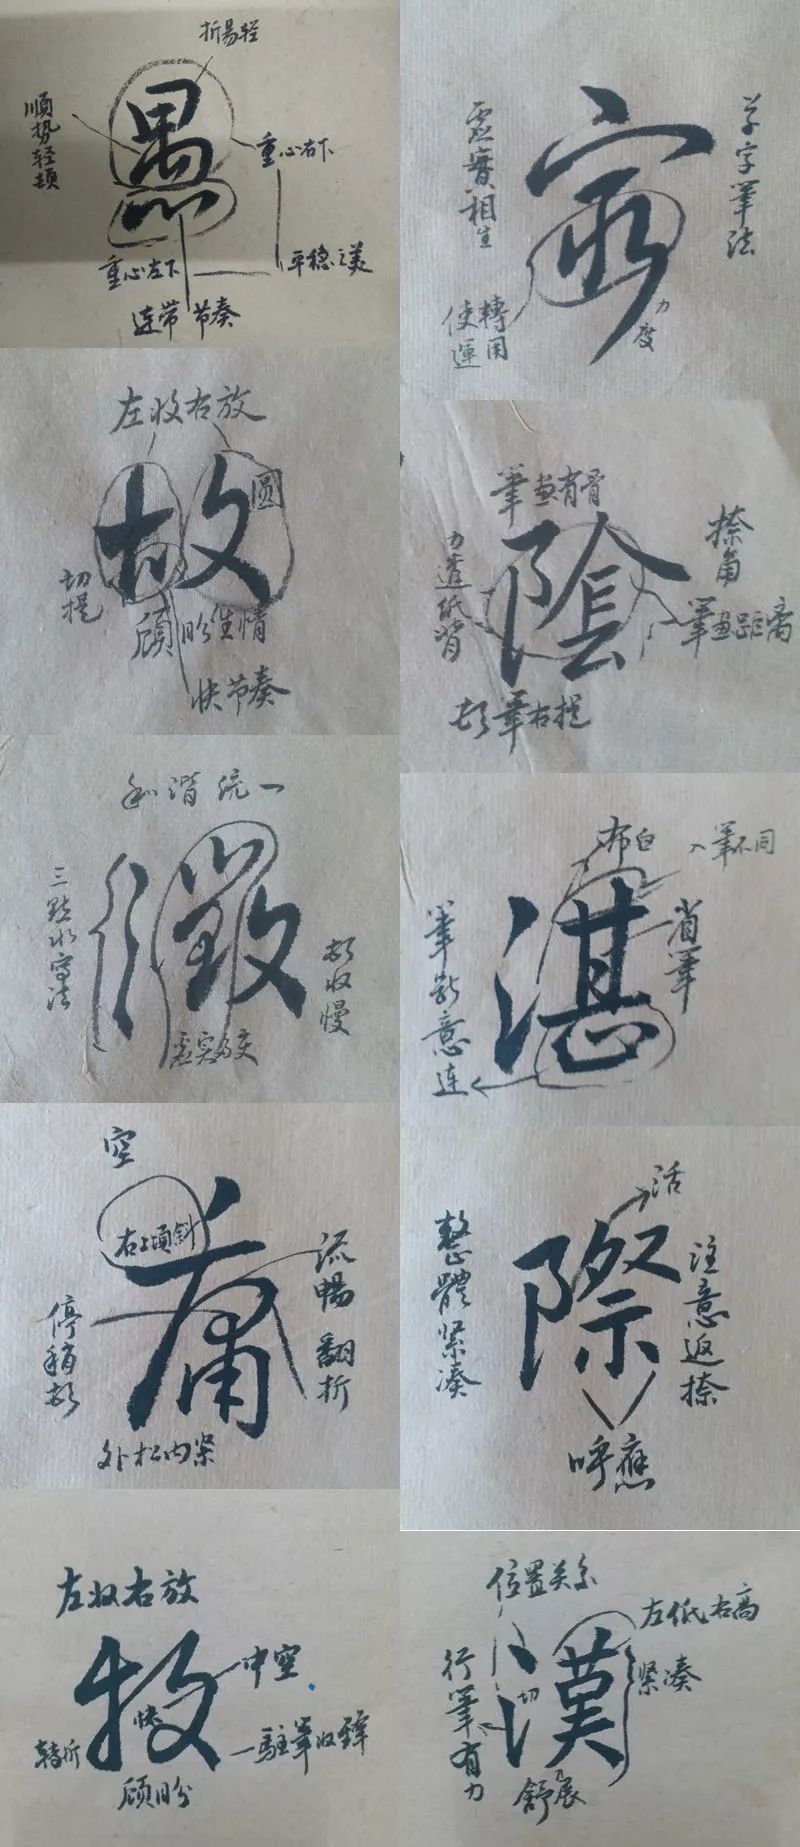 折易轻
愚
顺势轻顿
重心右下
重心左下
平稳之美
连带 节奏
虚實相生
草字筆法
使轉運用
力度
左收右放
故
圆
切提
顾盼生情
快节奏
筆畫有骨
陰
力透纸背
捺角
筆畫距离
顿筆右提
和谐统一
三點水写法
徵
顿收慢
虚实相交
布白
入筆不同
湛
省筆
筆断意连
空
右上倾斜
庸
流暢翻折
停稍顿
外松内紧
活
際
整體紧凑
注意返捺
呼應
左收右放
牧
中空
快
转折
一駐筆收鋒
顾盼
位置关系
左低右高
漢
紧凑
切
行筆有力
舒展